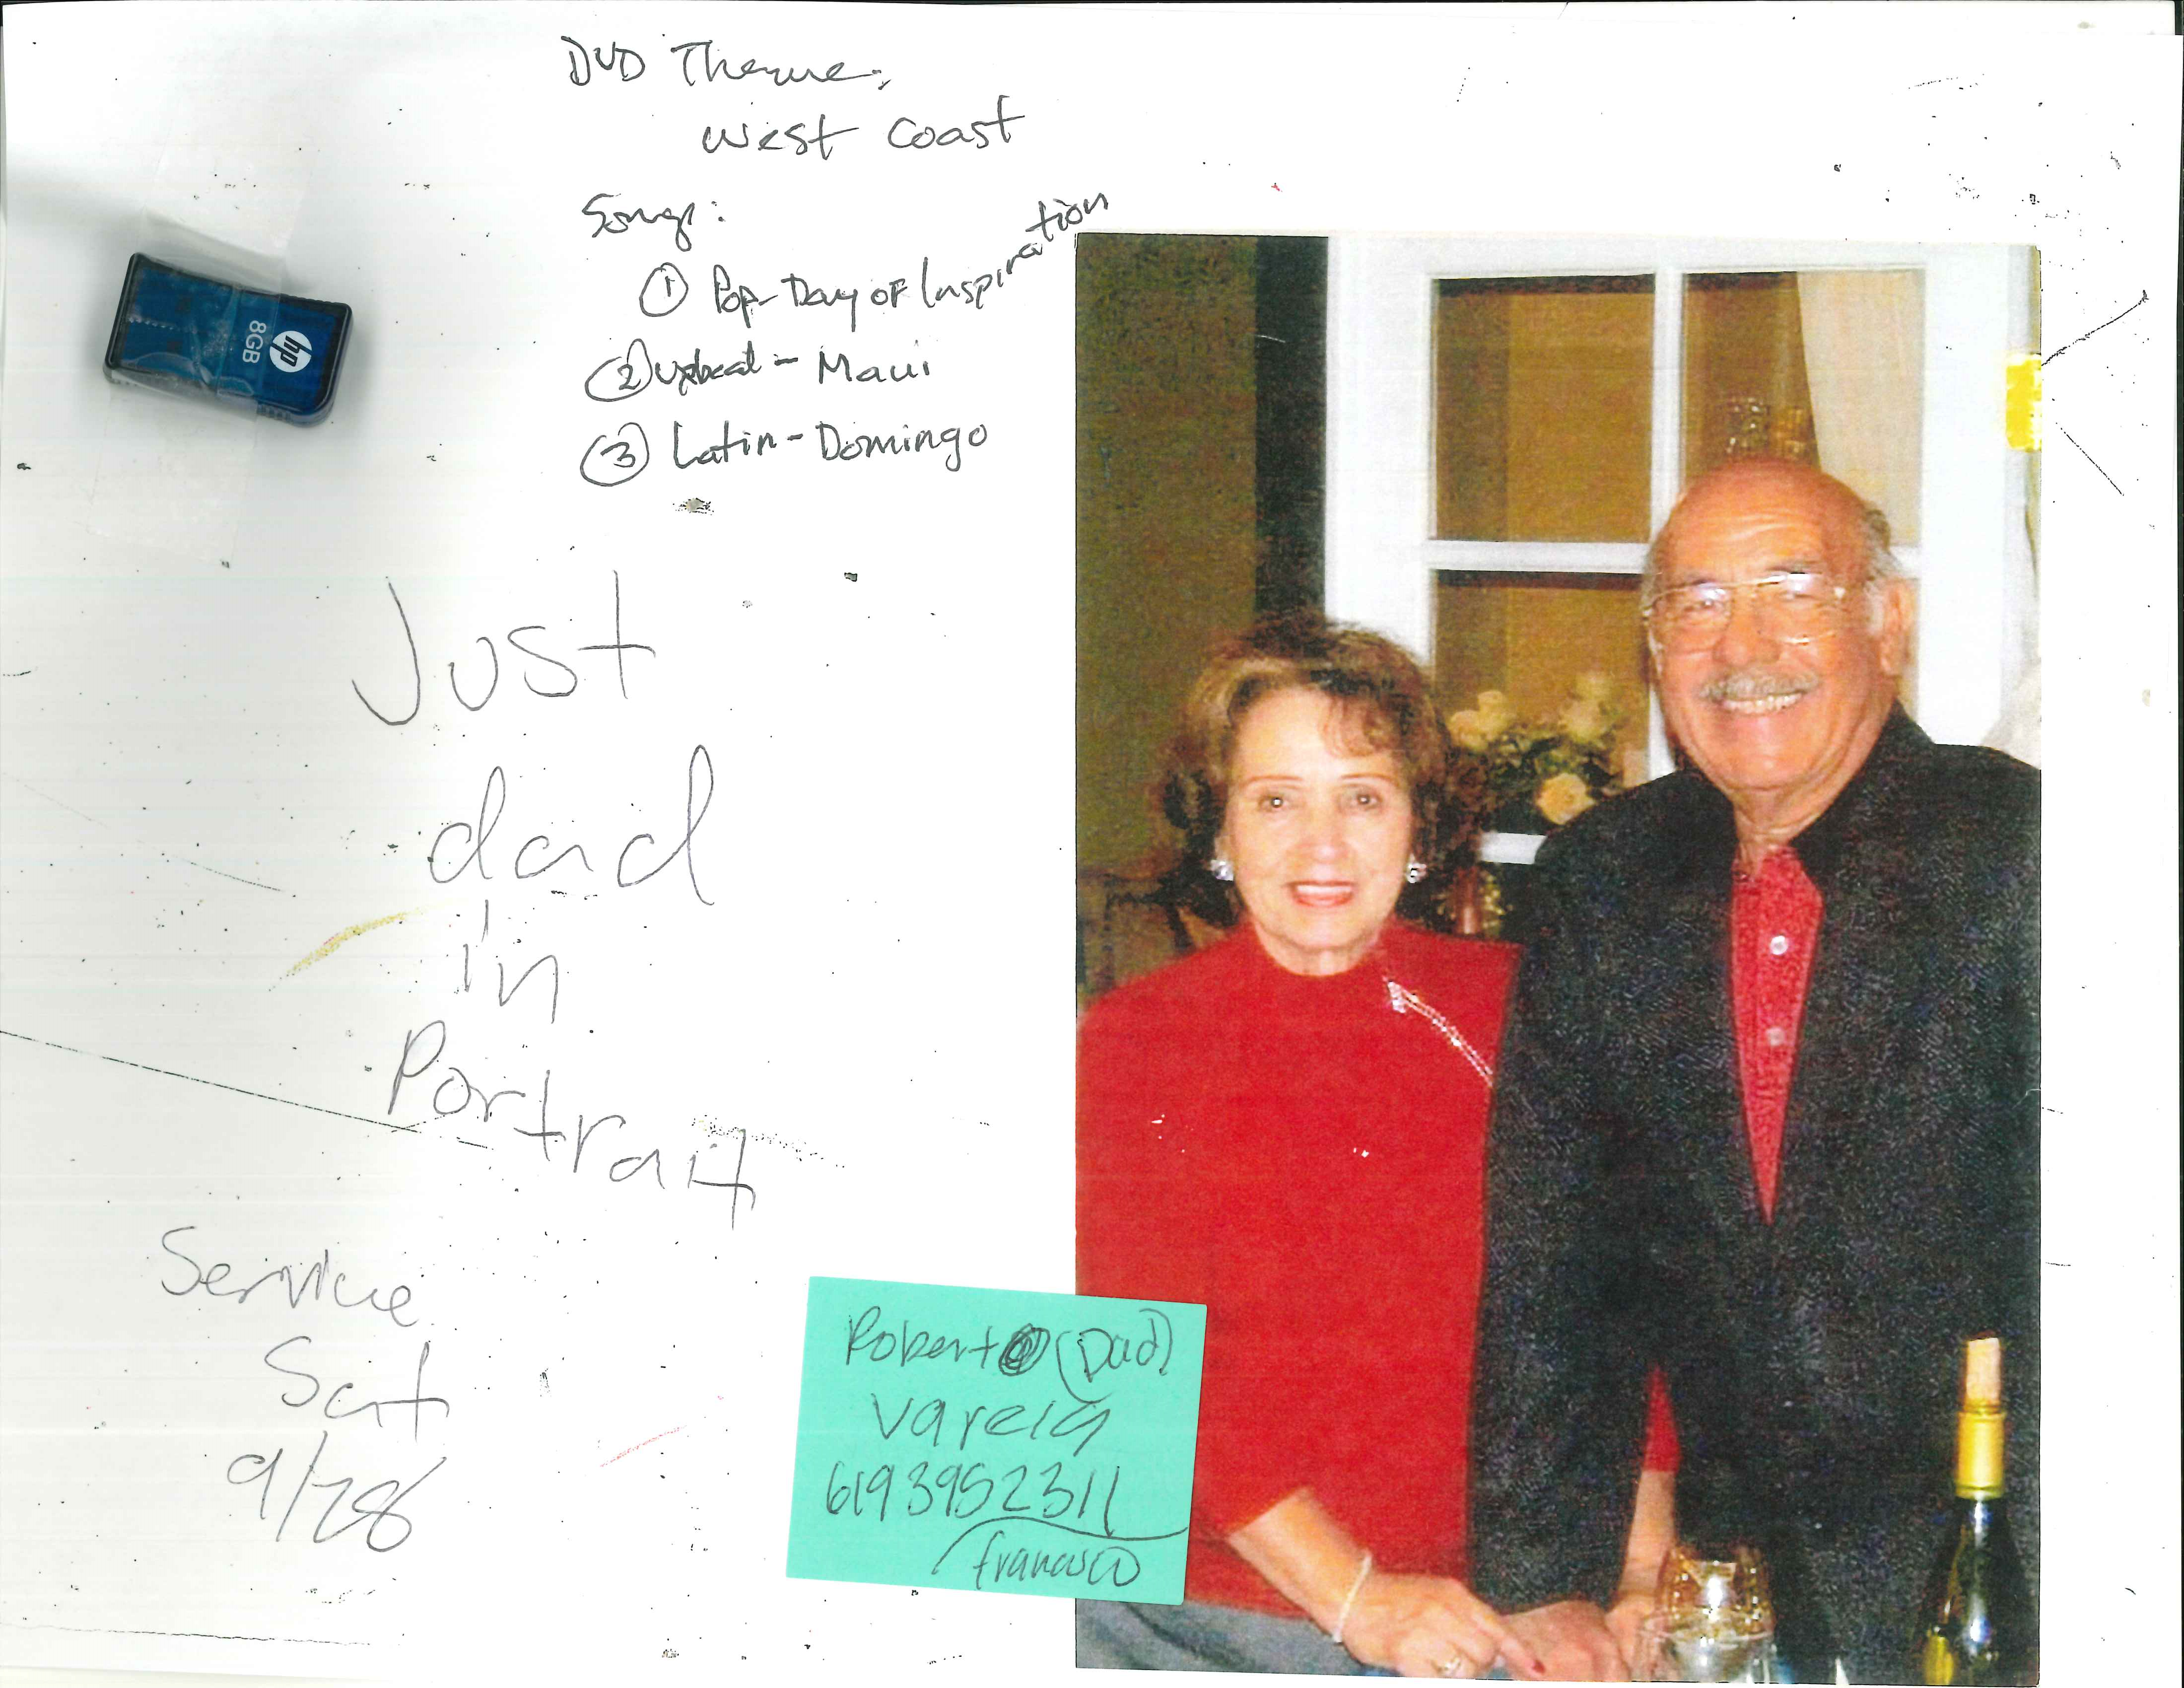 DVD Theme:
West Coast
Songs:
① Pop-Day of Inspiration
② upbeat - Maui
③ Latin - Domingo
hp
8GB
Just
dad
in
Portrait
Service
Sat
9/28
Robert (Dad)
Varela
6193952311
Francisco